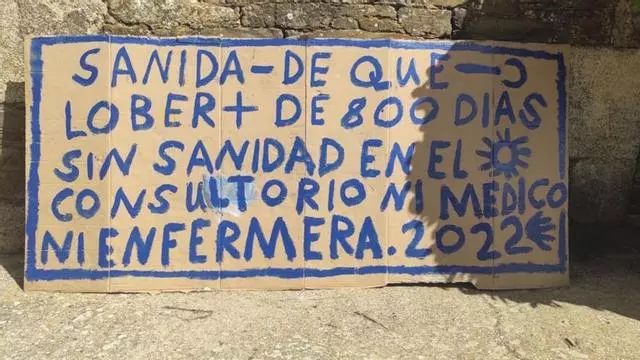 SANIDA-DE QUE-
LOBER+ DE 800 DIAS
SIN SANIDAD EN EL
CONSULTORIO NI MEDICO
NI ENFERMERA.2022